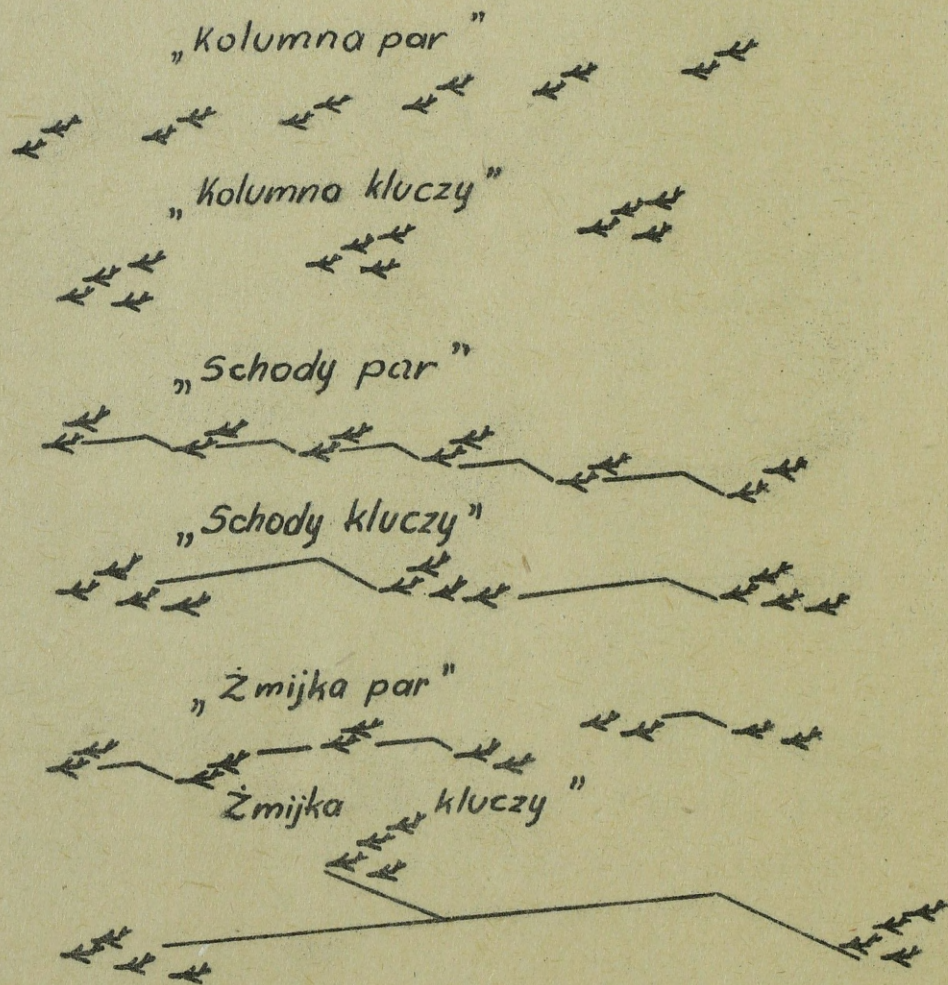 „Kolumna par”
„Kolumna kluczy”
„Schody par”
„Schody kluczy”
„Żmijka par”
Żmijka kluczy”